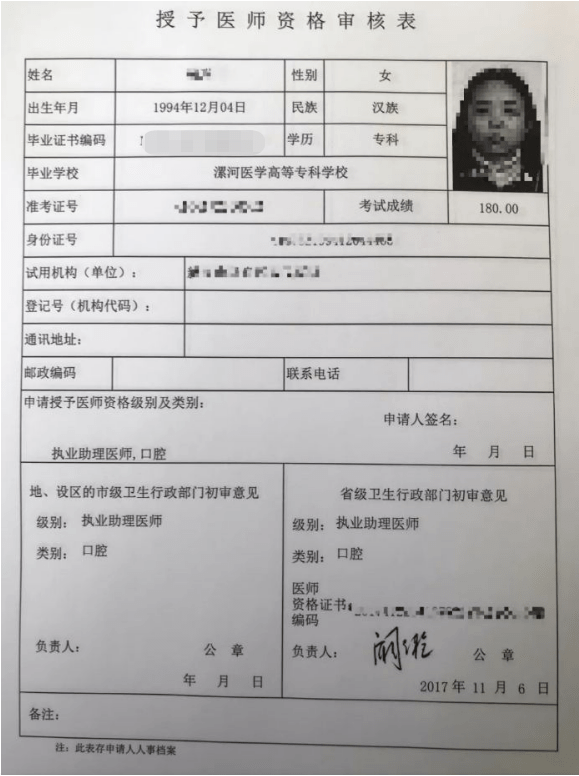 授予医师资格审核表
姓名 性别 女
出生年月 1994年12月04日 民族 汉族
毕业证书编码 学历 专科
毕业学校 漯河医学高等专科学校
准考证号 考试成绩 180.00
身份证号
试用机构（单位）：
登记号（机构代码）：
通讯地址：
邮政编码 联系电话
申请授予医师资格级别及类别：
申请人签名：
执业助理医师,口腔 年 月 日
地、设区的市级卫生行政部门初审意见
级别：执业助理医师
类别：口腔
负责人： 公 章
年 月 日
省级卫生行政部门初审意见
级别：执业助理医师
类别：口腔
医师
资格证书
编码
负责人： 公 章
2017 年 11 月 6 日
备注：
注：此表存申请人人事档案